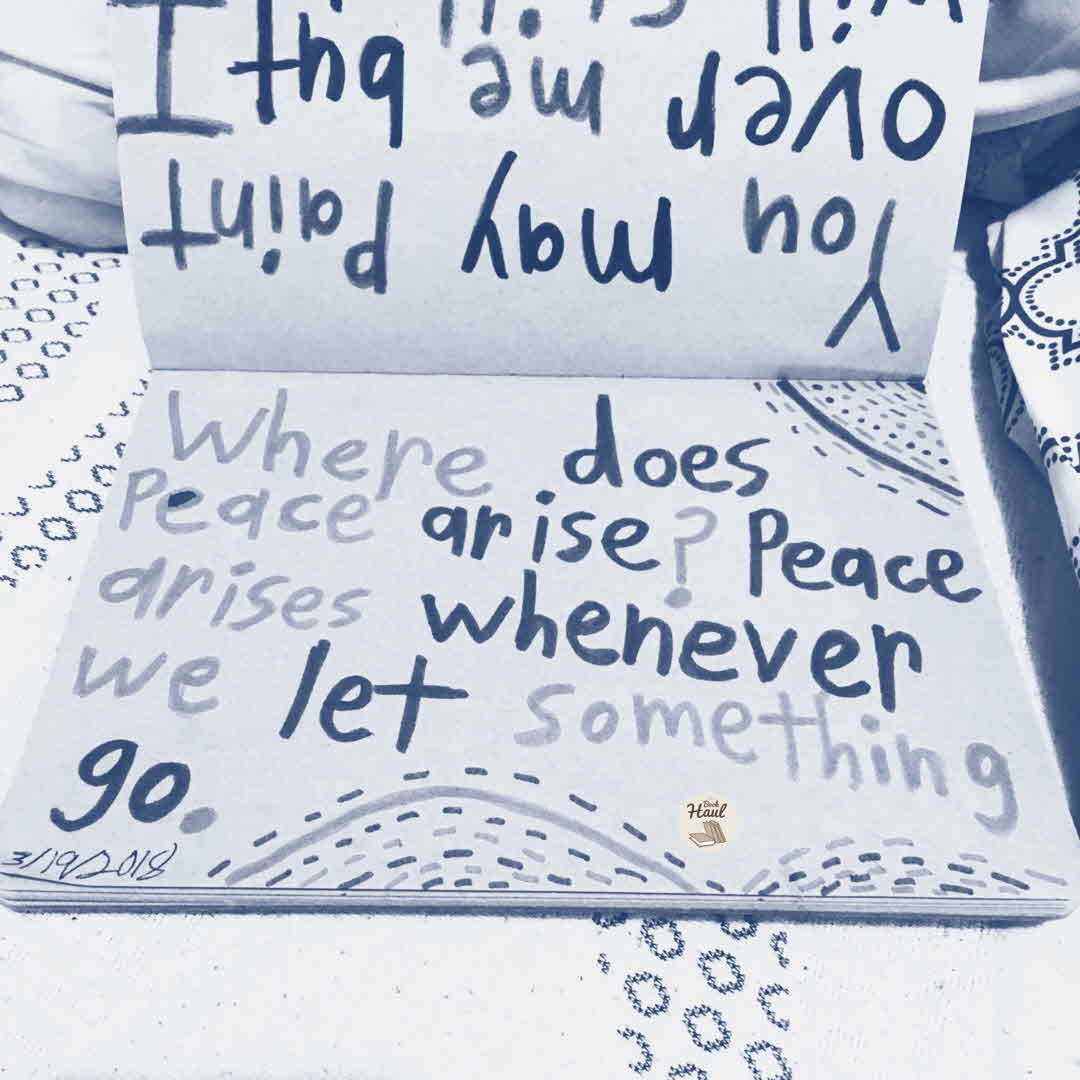 You may paint
over me but I
will still
Where does
Peace arise? Peace
arises whenever
we let something
go.
3/19/2018
Book
Haul